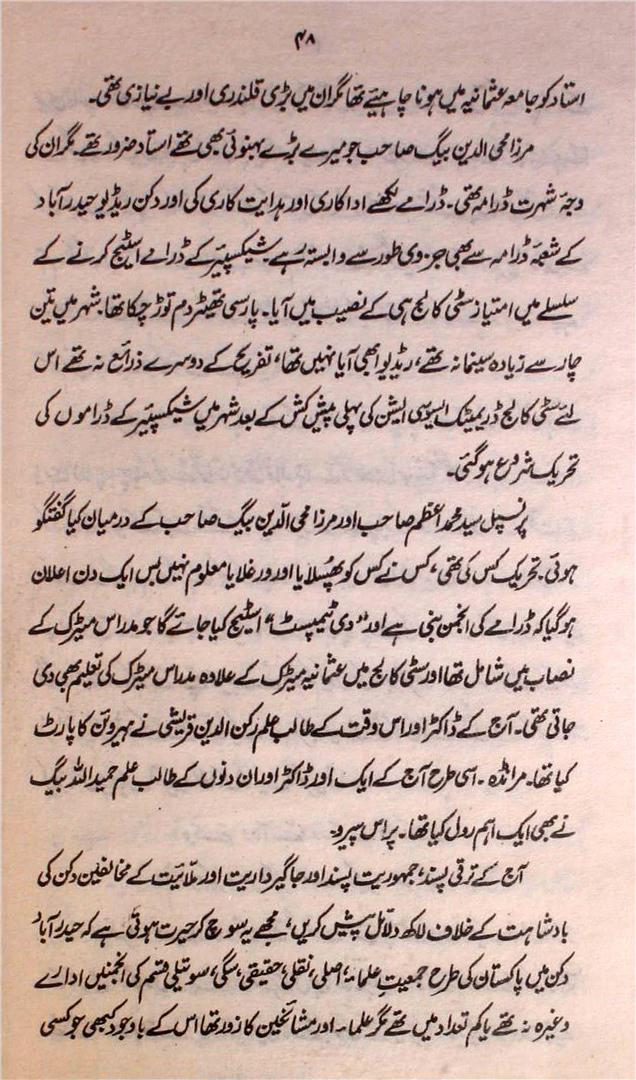 ۴۸
استاد کو جامعہ عثمانیہ میں ہونا چاہیئے تھا مگر ان میں بڑی قلندری اور بے نیازی تھی۔
مرزا محی الدین بیگ صاحب جو میرے بڑے بہنوئی بھی تھے استاد ضرور تھے۔ مگر ان کی
وجۂ شہرت ڈرامہ تھی۔ ڈرامے لکھے اداکاری اور ہدایت کاری کی اور دکن ریڈیو حیدرآباد
کے شعبۂ ڈرامہ سے بھی جزوی طور سے وابستہ رہے۔ شیکسپیئر کے ڈرامے اسٹیج کرنے کے
سلسلے میں امتیاز سٹی کالج ہی کے نصیب میں آیا۔ پارسی تھیٹر دم توڑ چکا تھا۔ شہر میں تین
چار سے زیادہ سینما نہ تھے، ریڈیو ابھی آیا نہیں تھا، تفریح کے دوسرے ذرائع نہ تھے اس
لئے سٹی کالج ڈریمیٹک ایسوسی ایشن کی پہلی پیش کش کے بعد شہر میں شیکسپیئر کے ڈراموں کی
تحریک شروع ہو گئی۔
پرنسپل سید محمد اعظم صاحب اور مرزا محی الدین بیگ صاحب کے درمیان کیا گفتگو
ہوئی۔ تحریک کس کی تھی، کس نے کس کو پھسلایا اور ورغلایا معلوم نہیں بس ایک دن اعلان
ہو گیا کہ ڈرامے کی انجمن بنی ہے اور "دی ٹیمپسٹ" اسٹیج کیا جائے گا جو مدراس میٹرک کے
نصاب میں شامل تھا اور سٹی کالج میں عثمانیہ میٹرک کے علاوہ مدراس میٹرک کی تعلیم بھی دی
جاتی تھی۔ آج کے ڈاکٹر اور اس وقت کے طالب علم رکن الدین قریشی نے ہیروئن کا پارٹ
کیا تھا۔ مرانڈہ۔ اسی طرح آج کے ایک اور ڈاکٹر اور ان دنوں کے طالب علم حمید اللہ بیگ
نے بھی ایک اہم رول کیا تھا۔ پراس پیرو۔
آج کے ترقی پسند، جمہوریت پسند اور جاگیرداریت اور ملائیت کے مخالفین دکن کی
بادشاہت کے خلاف لاکھ دلائل پیش کریں، مجھے یہ سوچ کر حیرت ہوتی ہے کہ حیدرآباد
دکن میں پاکستان کی طرح جمعیت علماء، اصلی، نقلی، حقیقی، سگی، سوتیلی قسم کی انجمنیں ادارے
وغیرہ نہ تھے یا کم تعداد میں تھے مگر علماء اور مشائخین کا زور تھا اس کے باوجود کبھی جو کسی